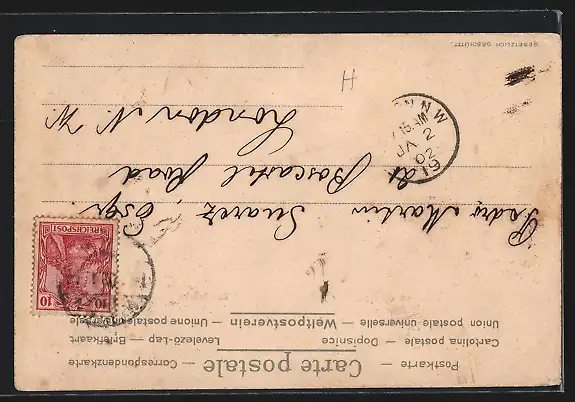 Carte postale
Postkarte — Correspondenzkarte
Cartolina postale — Dopisnice Levelező-Lap — Briefkaart
Union postale universelle — Weltpostverein — Unione postale universale
REICHSPOST
10
Pedro Martin Suarez, Esqr
21 Boscastle Road
London N. W.
N. W
15 AM
JA 2
02
19
H
GESETZLICH GESCHÜTZT.